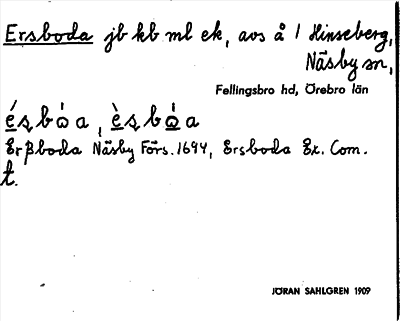 Ersboda jb kb ml ek, avs å / Hinseberg,
Näsby sn,
Fellingsbro hd, Örebro län
Erβboda Näsby Förs. 1694, Ersboda Ex. Com.
t.
JÖRAN SAHLGREN 1909